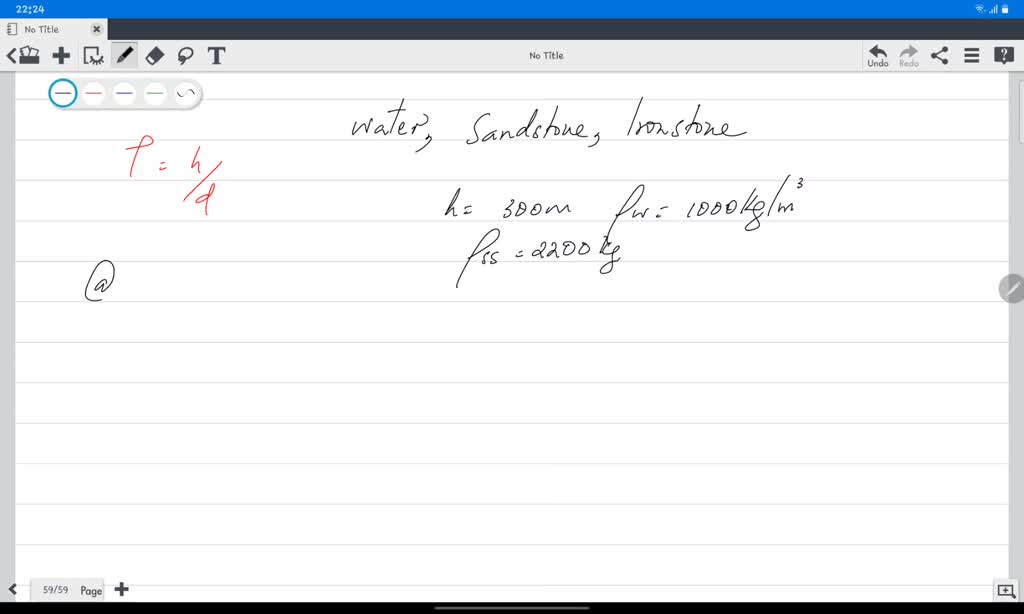 22;24
No Title
No Title
Undo
Redo
T
water, Sandstone, Ironstone
P = h/d
h = 300m ρw = 1000kg/m³
ρss = 2200kg
@
59/59 Page